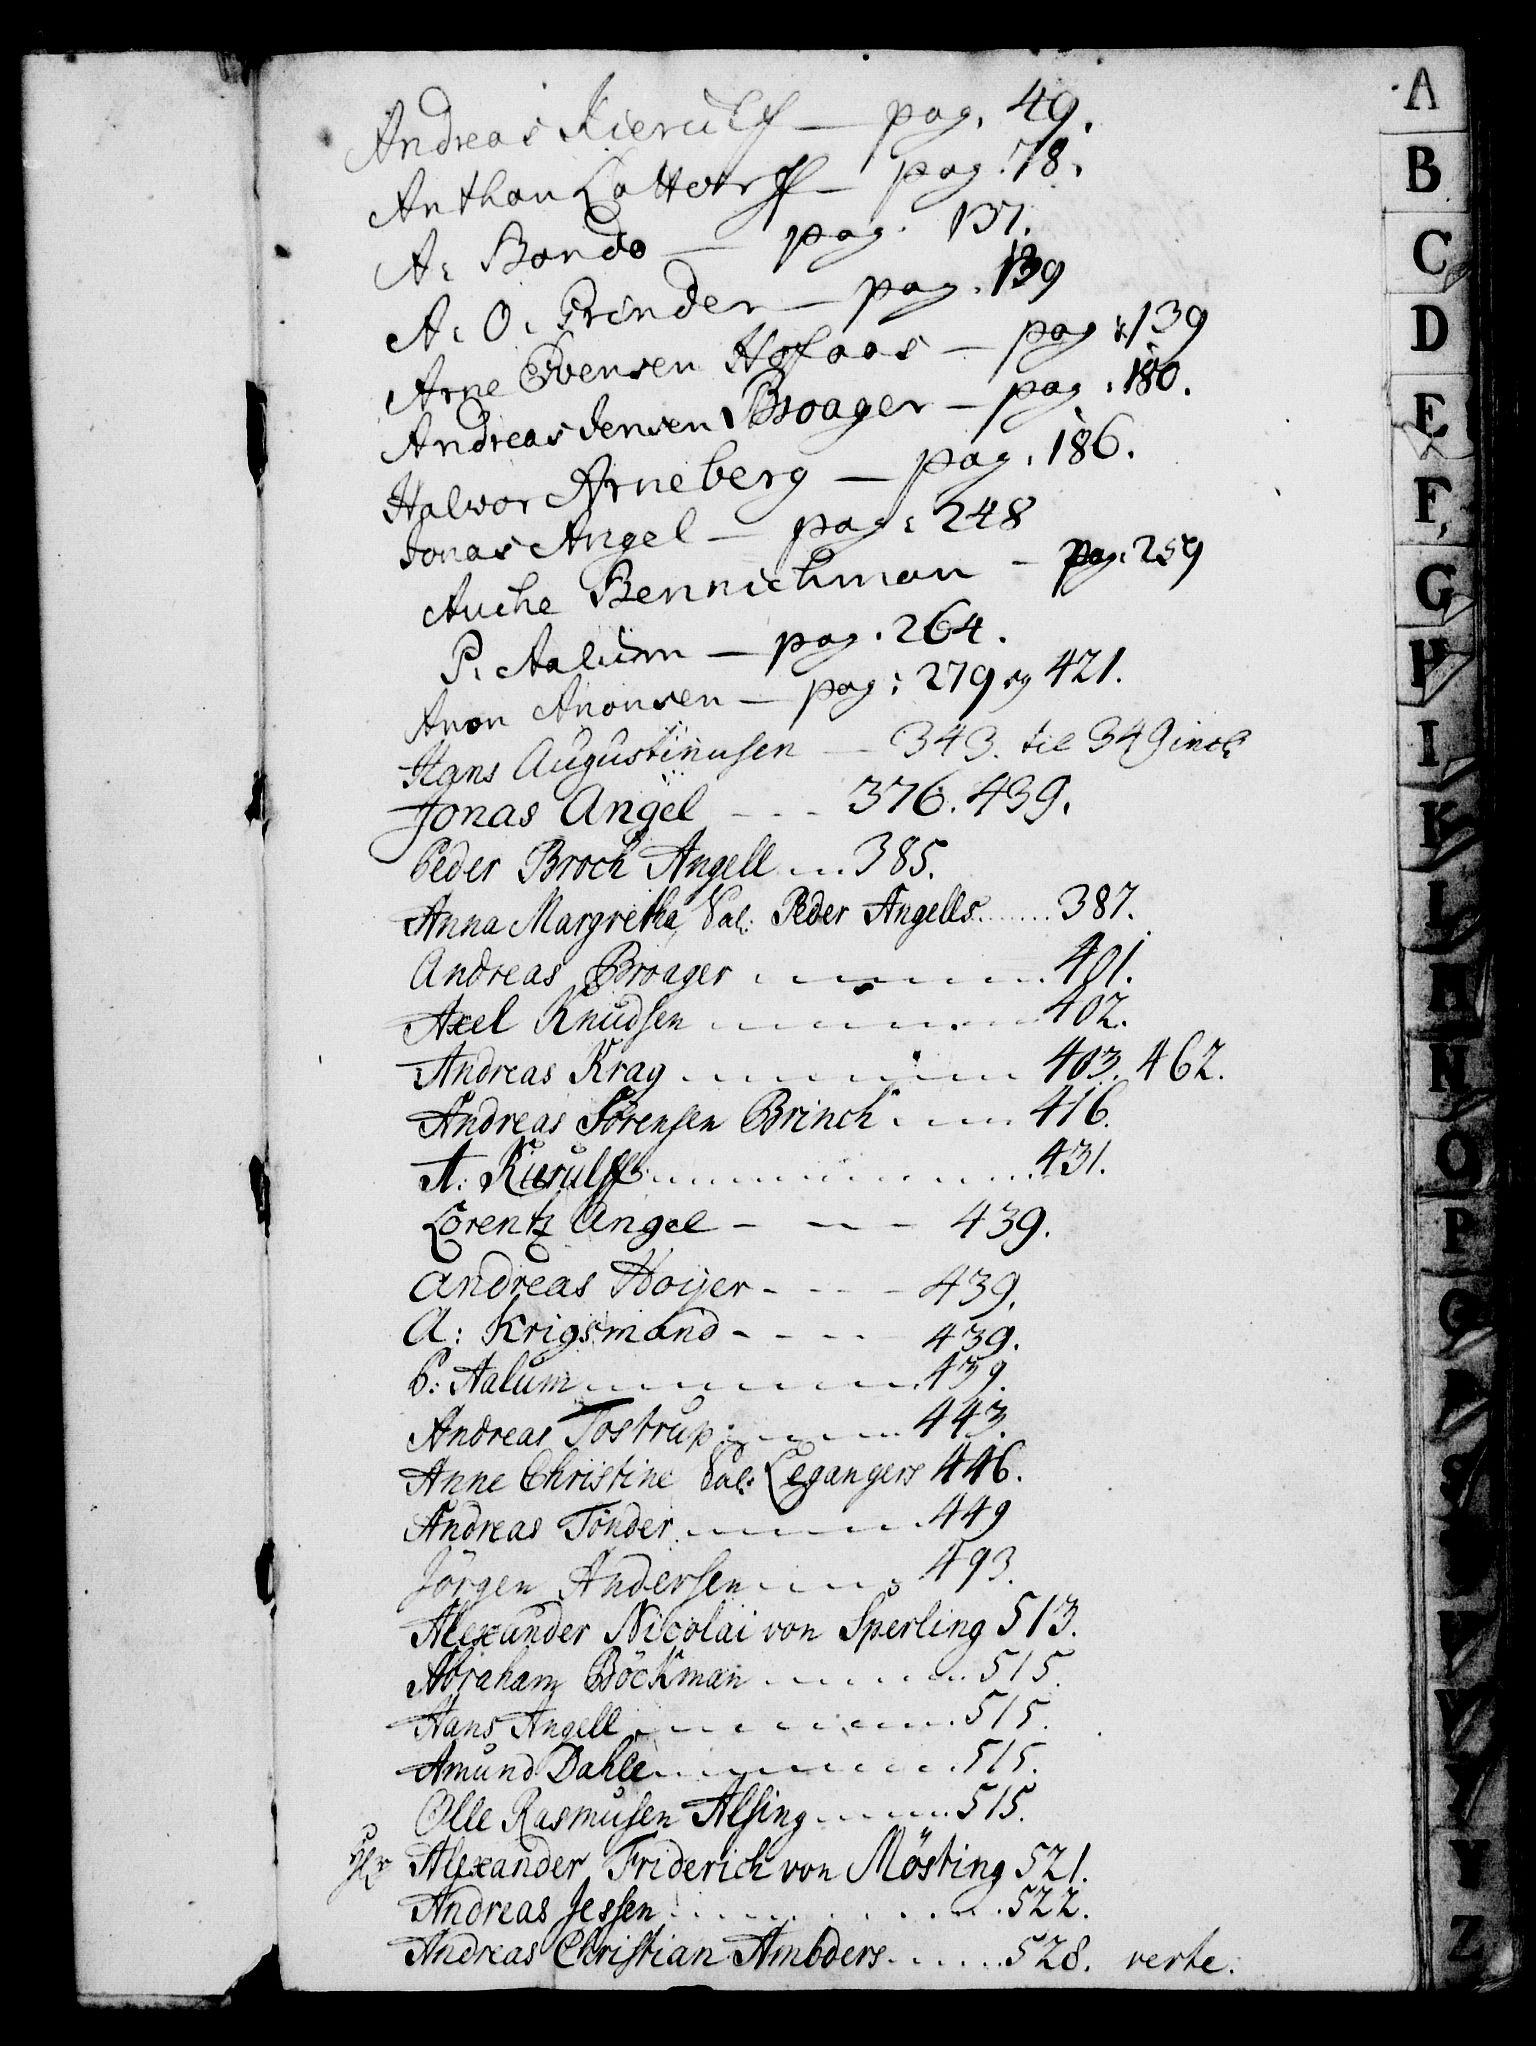 Andreas Kierulff — pag. 49.
Anthon Lattorff — pag. 78.
A: Bondo — pag. 137.
A: O: Prinder — pag. 139
Arne Evensen Hofaas — pag: 139
Andreas Jensen Broager — pag: 180.
Halvor Arneberg — pag. 186.
Jonas Angel — pag: 248
Auche Bennichman — pag: 259
P: Aalum — pag. 264.
Aron Aronsen — pag: 279 og 421.
Hans Augustinusen — 343. til 349 incl:
Jonas Angel - - - 376. 439.
Peder Broch Angell ... 385.
Anna Margretha, Sal: Peder Angells ....... 387.
Andreas Broager ........ 401.
Axel Knudsen ........ 402.
Andreas Krag ........ 403. 462.
Andreas Sørensen Brinch ..... 416.
A: Kierulff ........ 431.
Lorentz Angel - - - 439.
Andreas Hoijer - - - - 439.
A: Krigsmand - - - - 439.
P: Aalum ........ 439.
Andreas Tostrup ....... 443.
Anne Christine Sal: Legangers 446.
Andreas Tönder ....... 449
Jörgen Andersen ..... 493.
Alexander Nicolai von Sperling 513.
Abraham Böckman ....... 515.
Hans Angell ........ 515.
Amund Dahle ........ 515.
Olle Rasmusen Alsing ...... 515.
Hr Alexander Friderich von Mösting 521.
Andreas Jessen ........ 522.
Andreas Christian Amböders ...... 528. verte.
A
B
C
D
E
F
G
H
I
K
L
M
N
O
P
Q
R
S
V
Y
Z